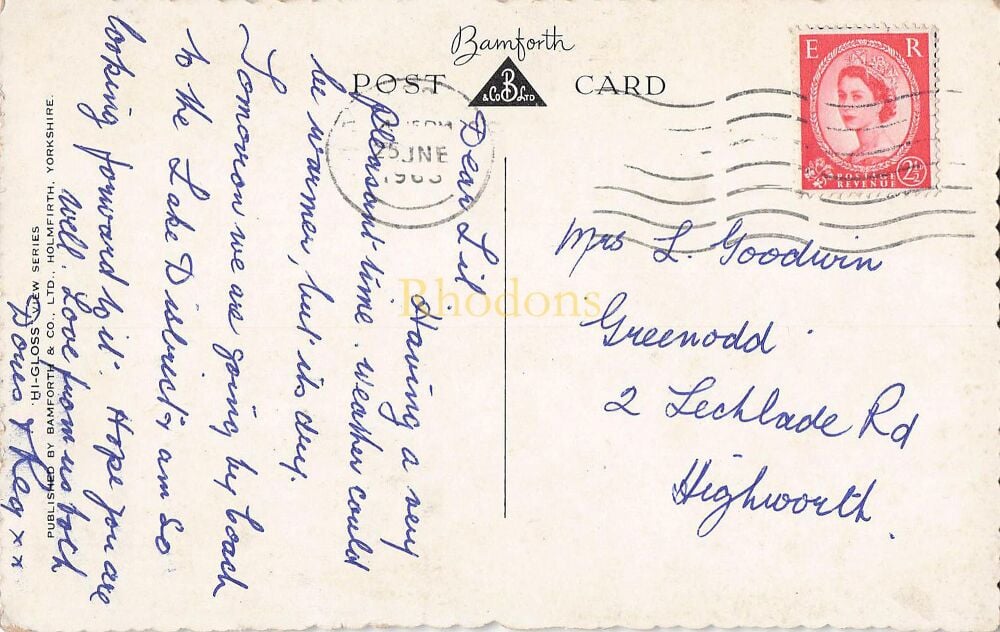 Bamforth
POST CARD
B
& Co LTD
E R
POSTAGE
REVENUE
2½
JNE
Dear Lil
Having a very
pleasant time. weather could
be warmer, but its dry.
Tomorrow we are going by Coach
to the Lake District & am so
looking forward to it. Hope you are
well. Love from us both
Doris & Reg x x
Mrs L. Goodwin
Greenodd
2 Lechlade Rd
Highworth.
"HI-GLOSS" VIEW SERIES
PUBLISHED BY BAMFORTH & CO., LTD., HOLMFIRTH, YORKSHIRE.
Rhodons